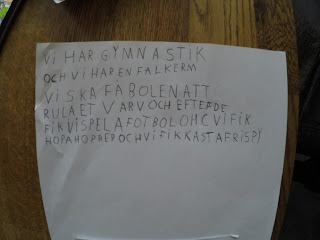 Vi HAR GYMNASTIK
OCH Vi HAR EN FALKERM
Vi SKA FÅ BOLEN ATT
RULA ET VARV OCH EFTEDE
FIK VI SPELA FOTBOL OHC VI FIK
HOPA HOPREP OCH Vi FIK KASTA FRISPI